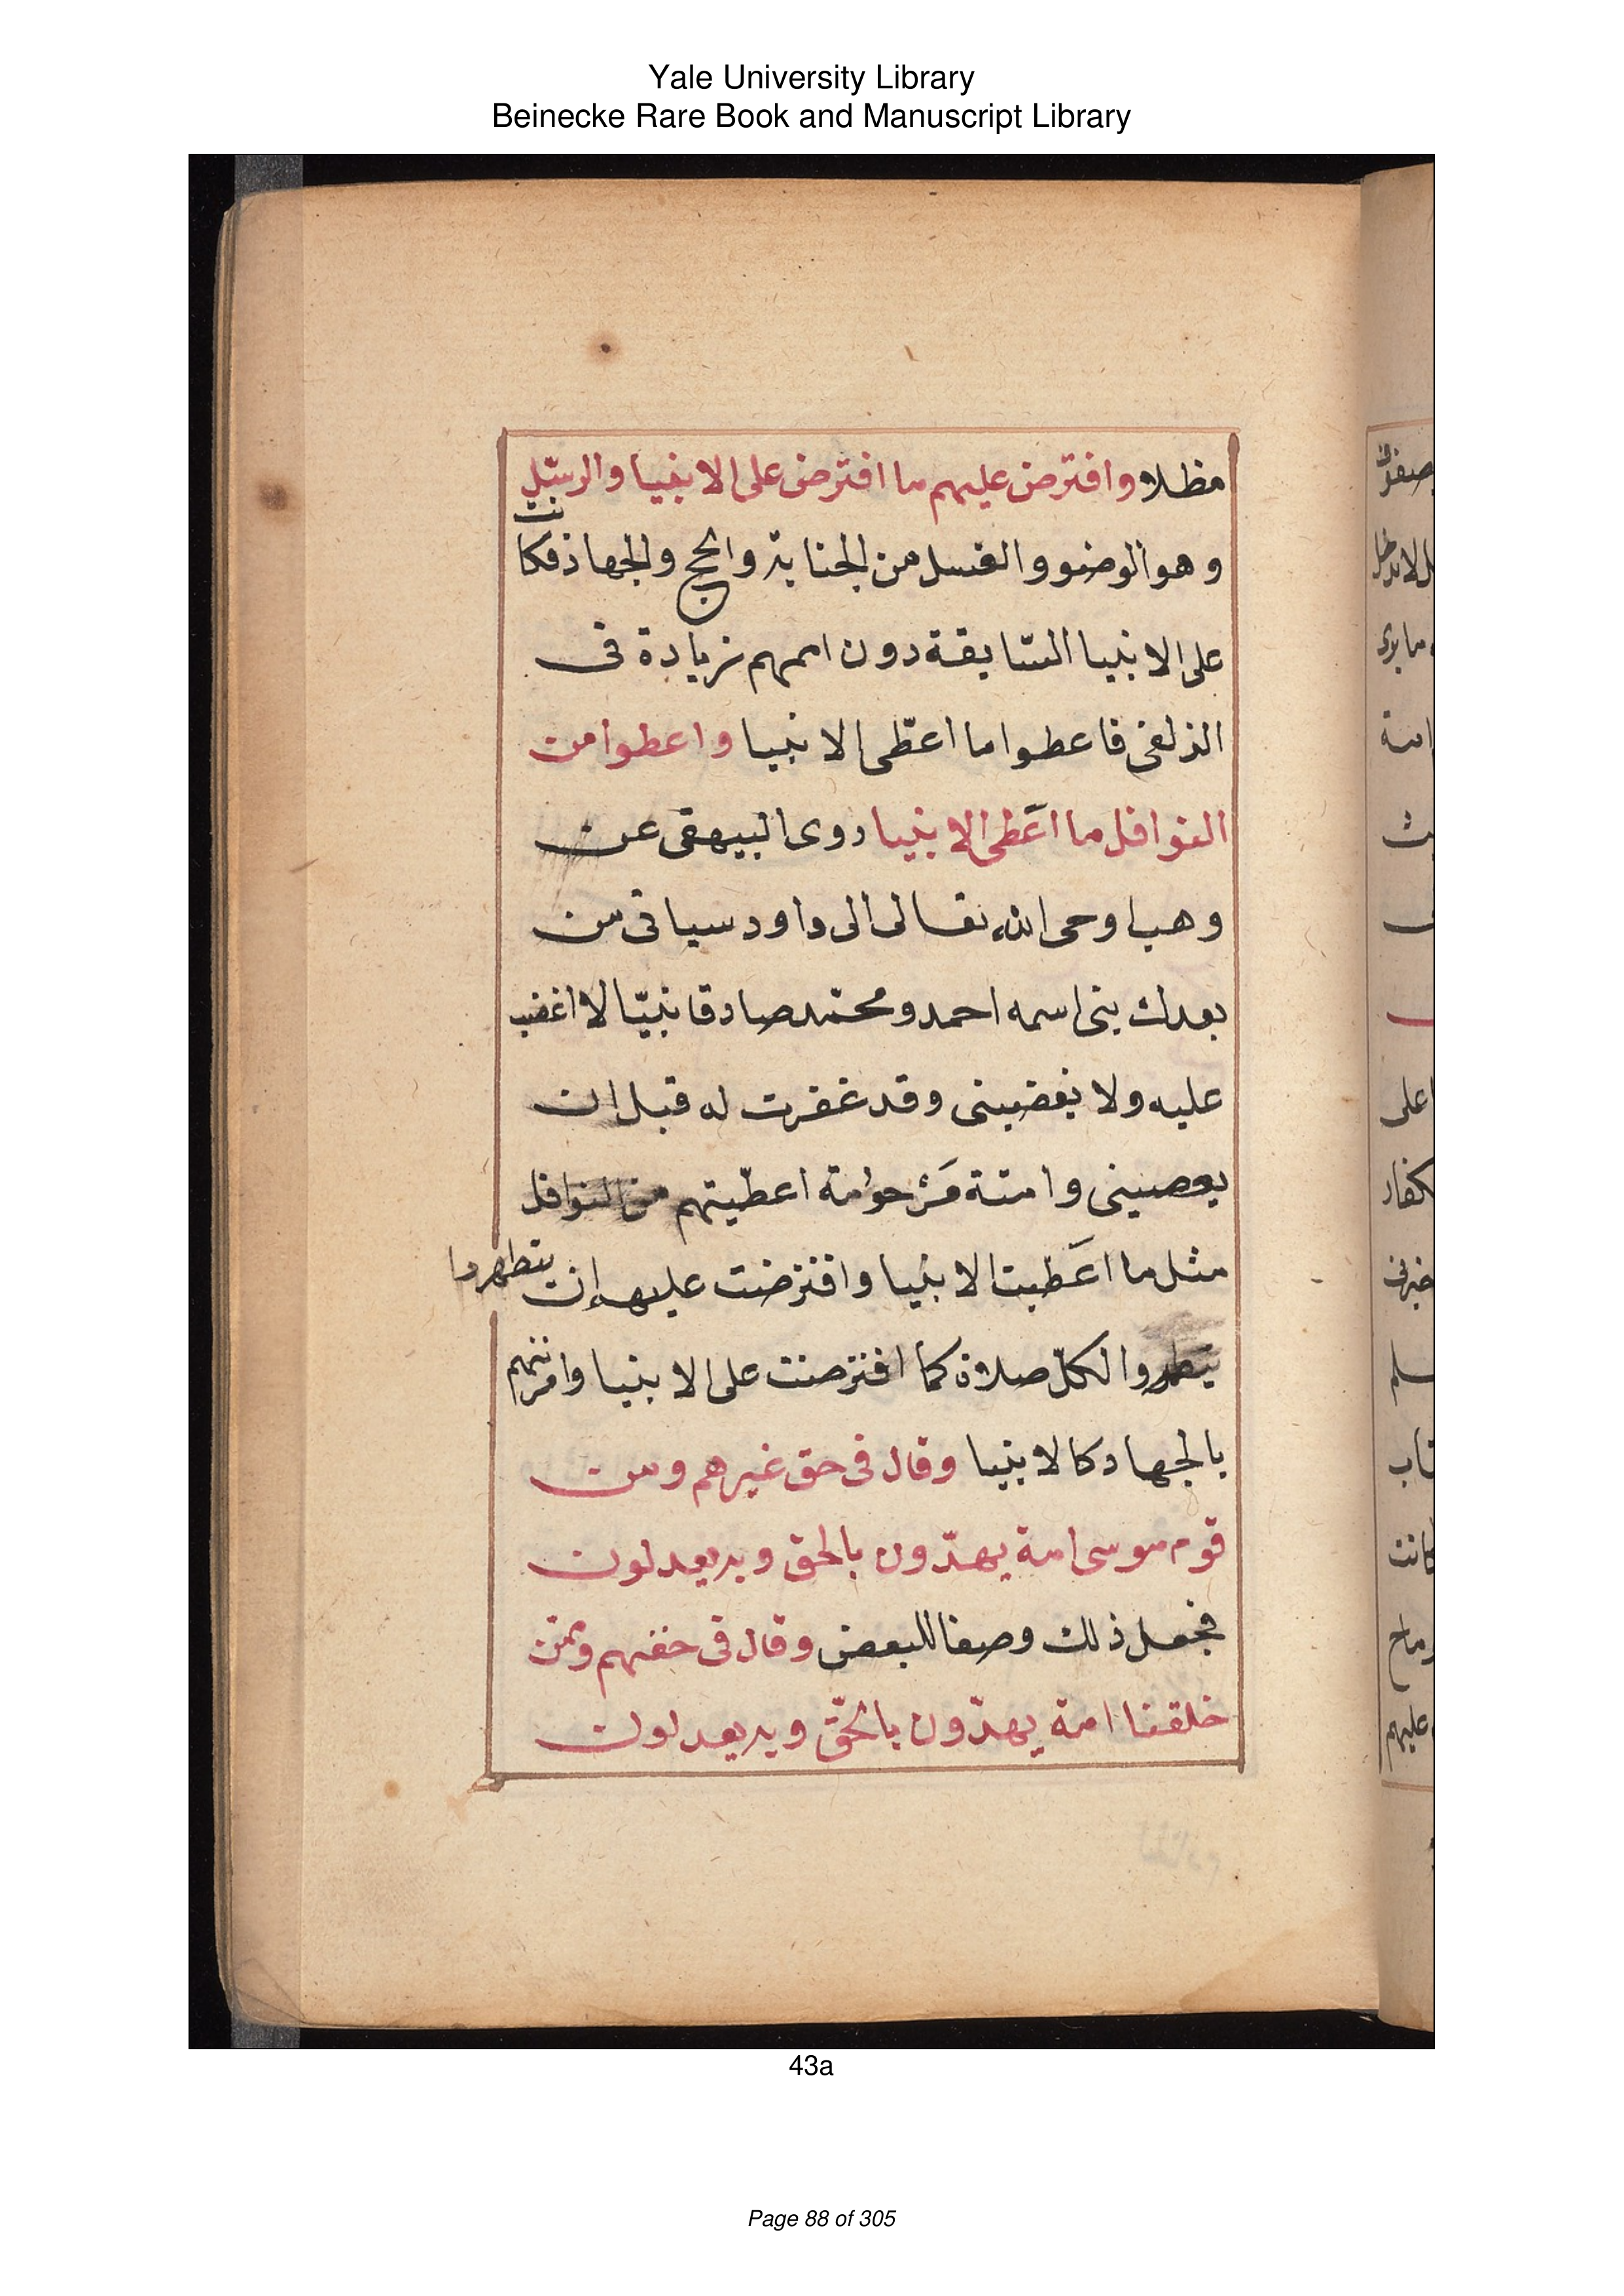 Yale University Library
Beinecke Rare Book and Manuscript Library
مظلا وافترض عليهم ما افترض على الانبيا والرسل
وهو الوضو والغسل من الجنابة والحج والجهاد فكانت
على الانبيا السّابقة دون اممهم زيادة فى
الزلفى فاعطوا ما اعطى الانبيا واعطوا من
النوافل ما اعَطى الانبيا روى البيهقى عن
وهب اوحى الله تعالى الى داود سياتى من
بعدك نبى اسمه احمد ومحمّد صادقا نبيّا لا اغضب
عليه ولا يغضبنى وقد غفرت له قبل ان
يعصينى وامته مَرْحومة اعطيتهم من النوافل
مثل ما اعَطيت الانبيا وافترضت عليهم ان يتطهروا
لكلّ صلاة كما افترضت على الانبيا وامرتهم
بالجهاد كالانبيا وقال فى حق غيرهم ومن
قوم موسى امة يهدّون بالحق وبه يعدلون
فجعل ذلك وصفا للبعض وقال فى حقهم وممن
خلقنا امة يهدّون بالحقّ وبه يعدلون
صفو
ل لا
ما
امة
على
كفار
سلم
تاب
كانت
رماح
عليهم
43a
Page 88 of 305